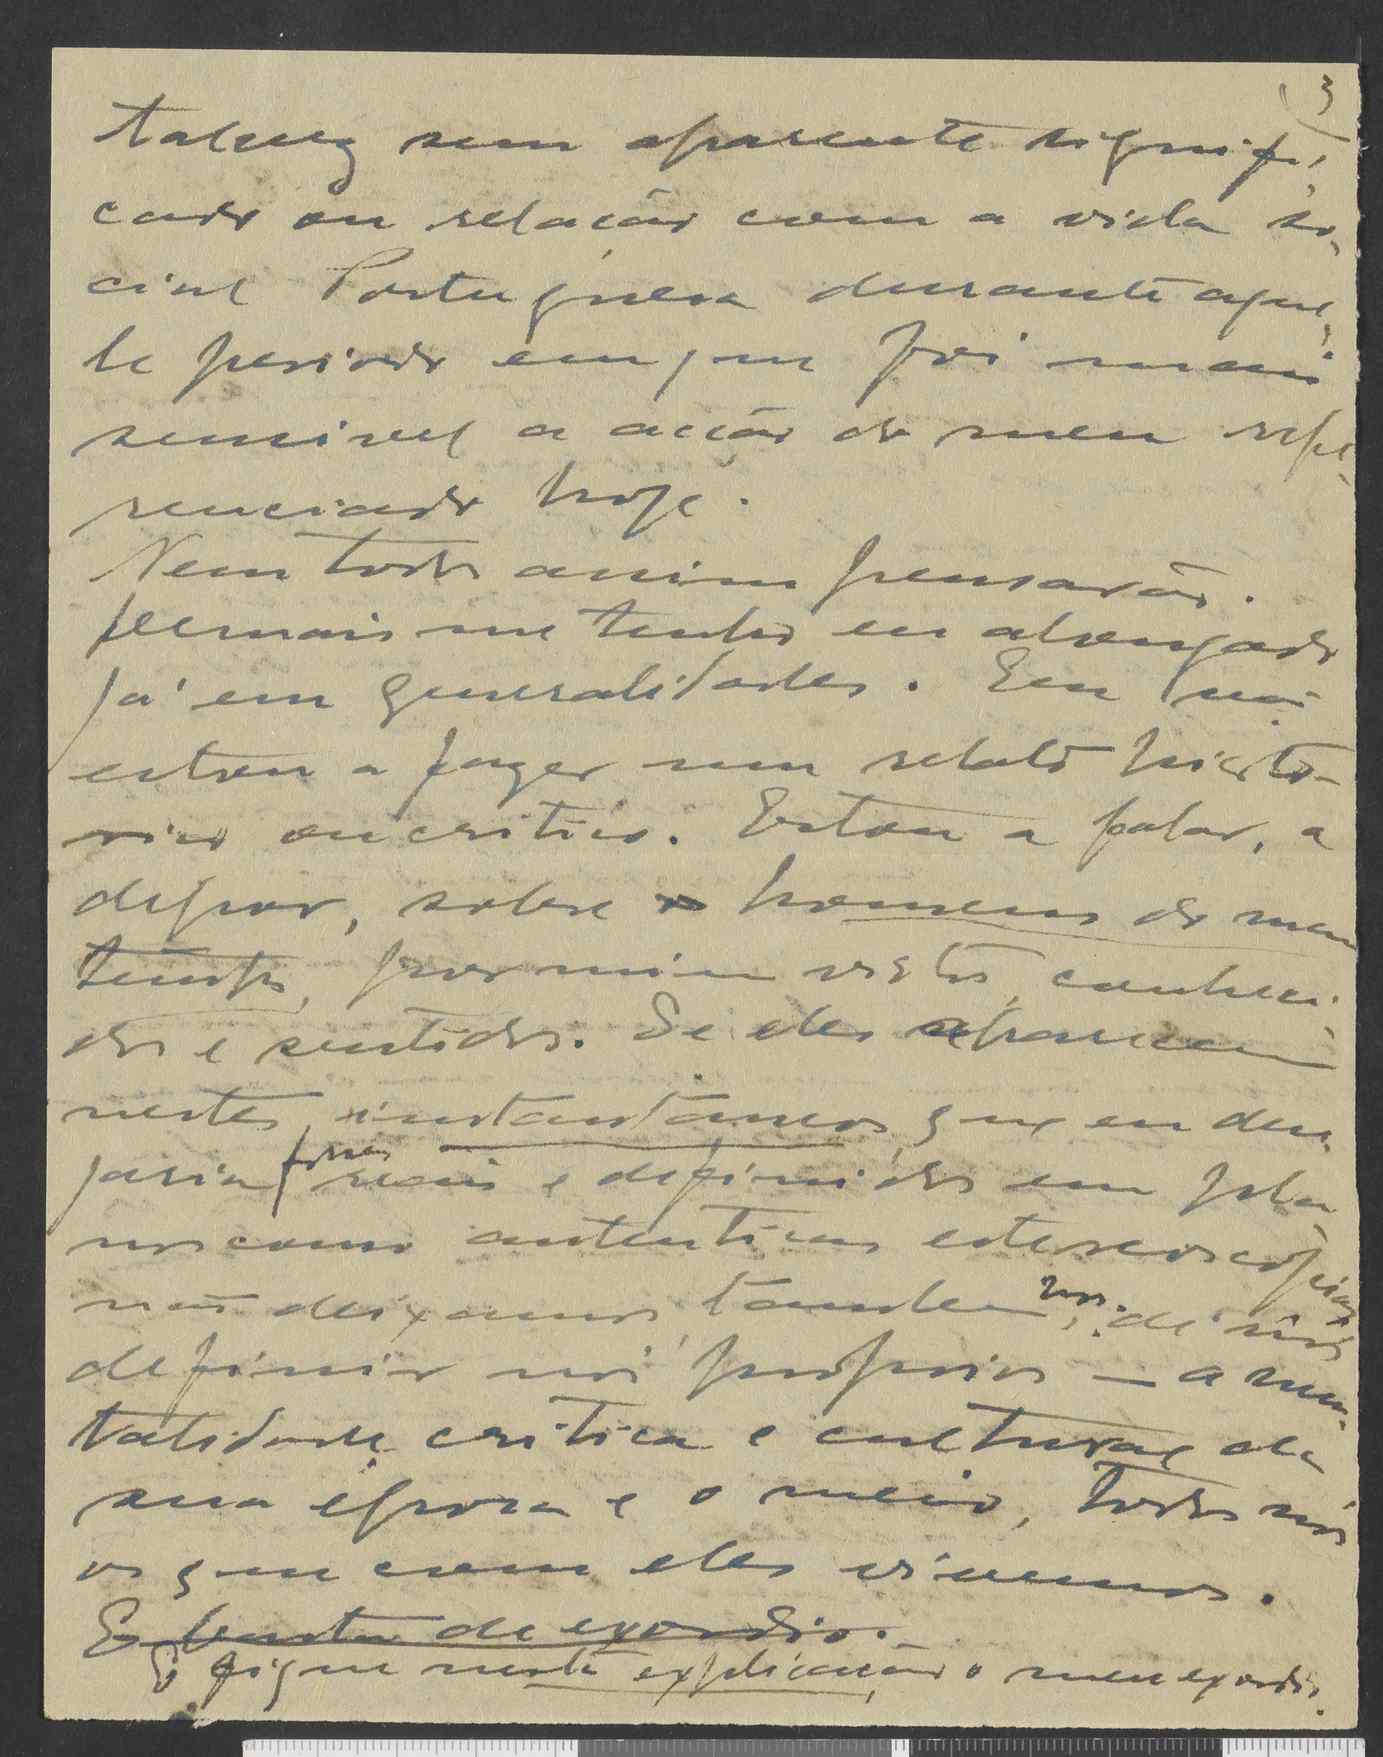 3
talvez sem aparente signifi,
cado ou relação com a vida so,
cial Portuguesa durante aque,
le periodo em que foi mais
sensivel a acção do meu refe,
renciado hoje.
Nem todos assim pensarão.
Demais me tenho eu alongado
já em generalidades. Eu não
estou a fazer um relato histo-
rico ou critico. Estou a falar, a
depor, sobre homens do meu
tempo, por mim vistos, conheci,
dos e sentidos. Se eles aparecem
nestes instantaneos, que eu dese,
jaria fossem reais e definidos em pla,
nos como autenticas estereoscopias,
não deixamos tambem nos: de nos
definir nós proprios — a men,
talidade critica e cultural da
sua epoca e o meio, todos nós
os que com eles vivemos.
E basta de exordio.
E fique nesta explicação o meu exordio.